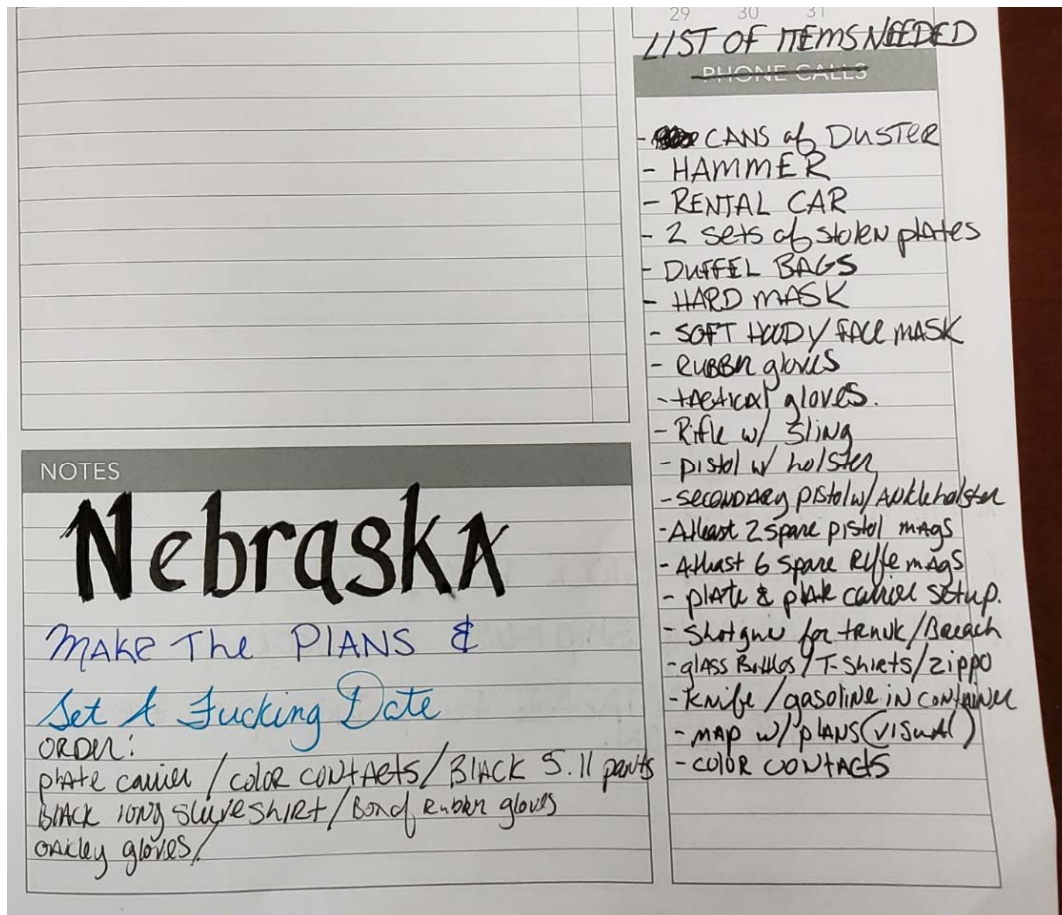 29 30 31
LIST OF ITEMS NEEDED
PHONE CALLS
- CANS of DUSTER
- HAMMER
- RENTAL CAR
- 2 sets of stolen plates
- DUFFEL BAGS
- HARD MASK
- SOFT HOODY/FACE MASK
- RUBBER gloves
- tactical gloves.
- Rifle w/ Sling
- pistol w/ holster
- secondary pistol w/ Ankle holster
- Atleast 2 spare pistol mags
- Atleast 6 spare Rifle mags
- plate & plate carrier setup.
- Shotgun for trunk/Breach
- glass Bottles/T-Shirts/zippo
- Knife/gasoline in container
- map w/ plans (visual)
- color contacts
NOTES
Nebraska
Make The Plans &
Set A Fucking Date
ORDER:
plate carrier / color contacts / Black 5.11 pants
Black long sleeve shirt / Box of Rubber gloves
oakley gloves/